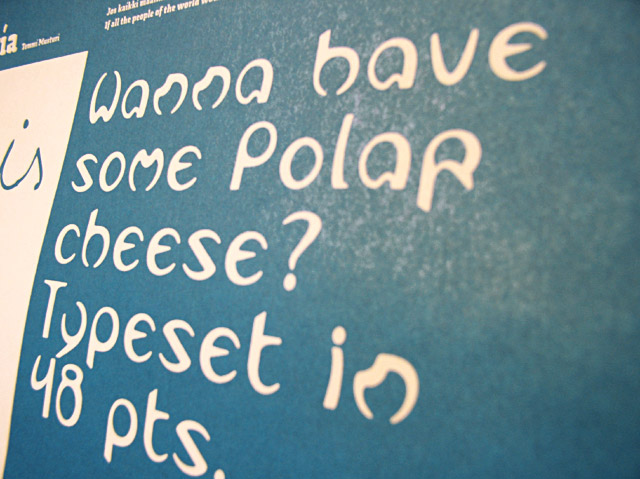 Jos kaikki
If all the people of the world
ia Tommi Musturi
is
Wanna have
some Polar
cheese?
Typeset in
48 pts.